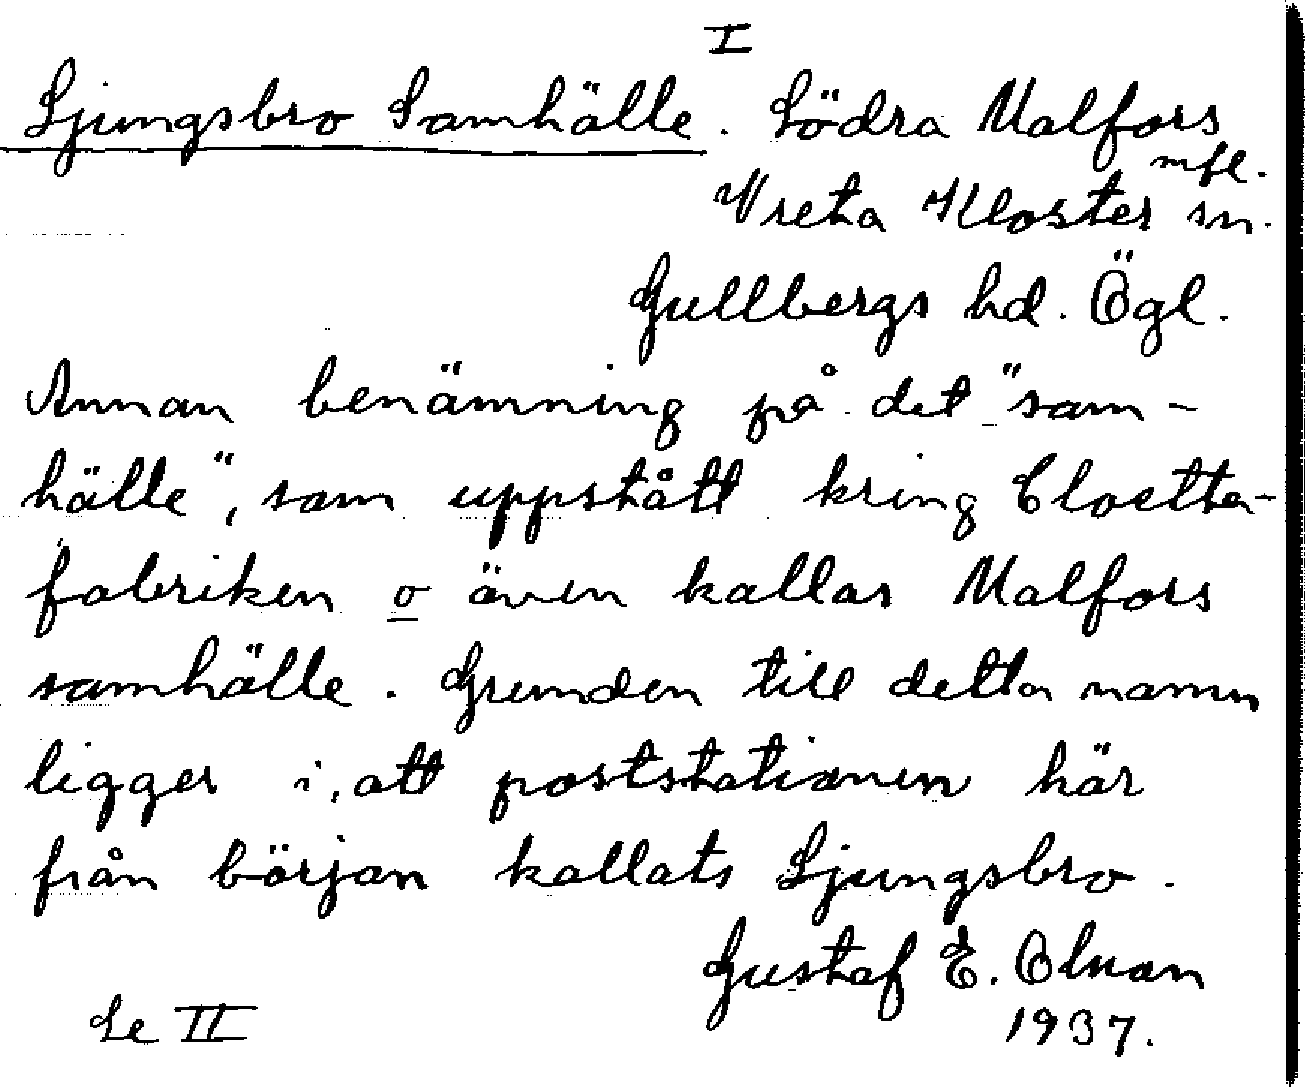 I
Ljungsbro Samhälle. Södra Malfors
mfl.
Vreta Kloster sn.
Gullbergs hd. Ögl.
Annan benämning på det "sam-
hälle", som uppstått kring Cloetta-
fabriken o även kallas Malfors
samhälle. Grunden till detta namn
ligger i, att poststationen här
från början kallats Ljungsbro.
Gustaf E. Olsson
1937.
Se II